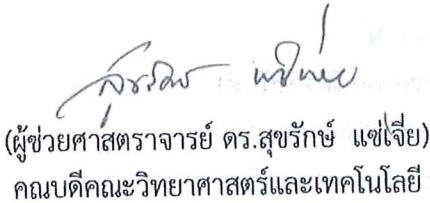 สุขรักษ์ แซ่เจี่ย
(ผู้ช่วยศาสตราจารย์ ดร.สุขรักษ์ แซ่เจี่ย)
คณบดีคณะวิทยาศาสตร์และเทคโนโลยี